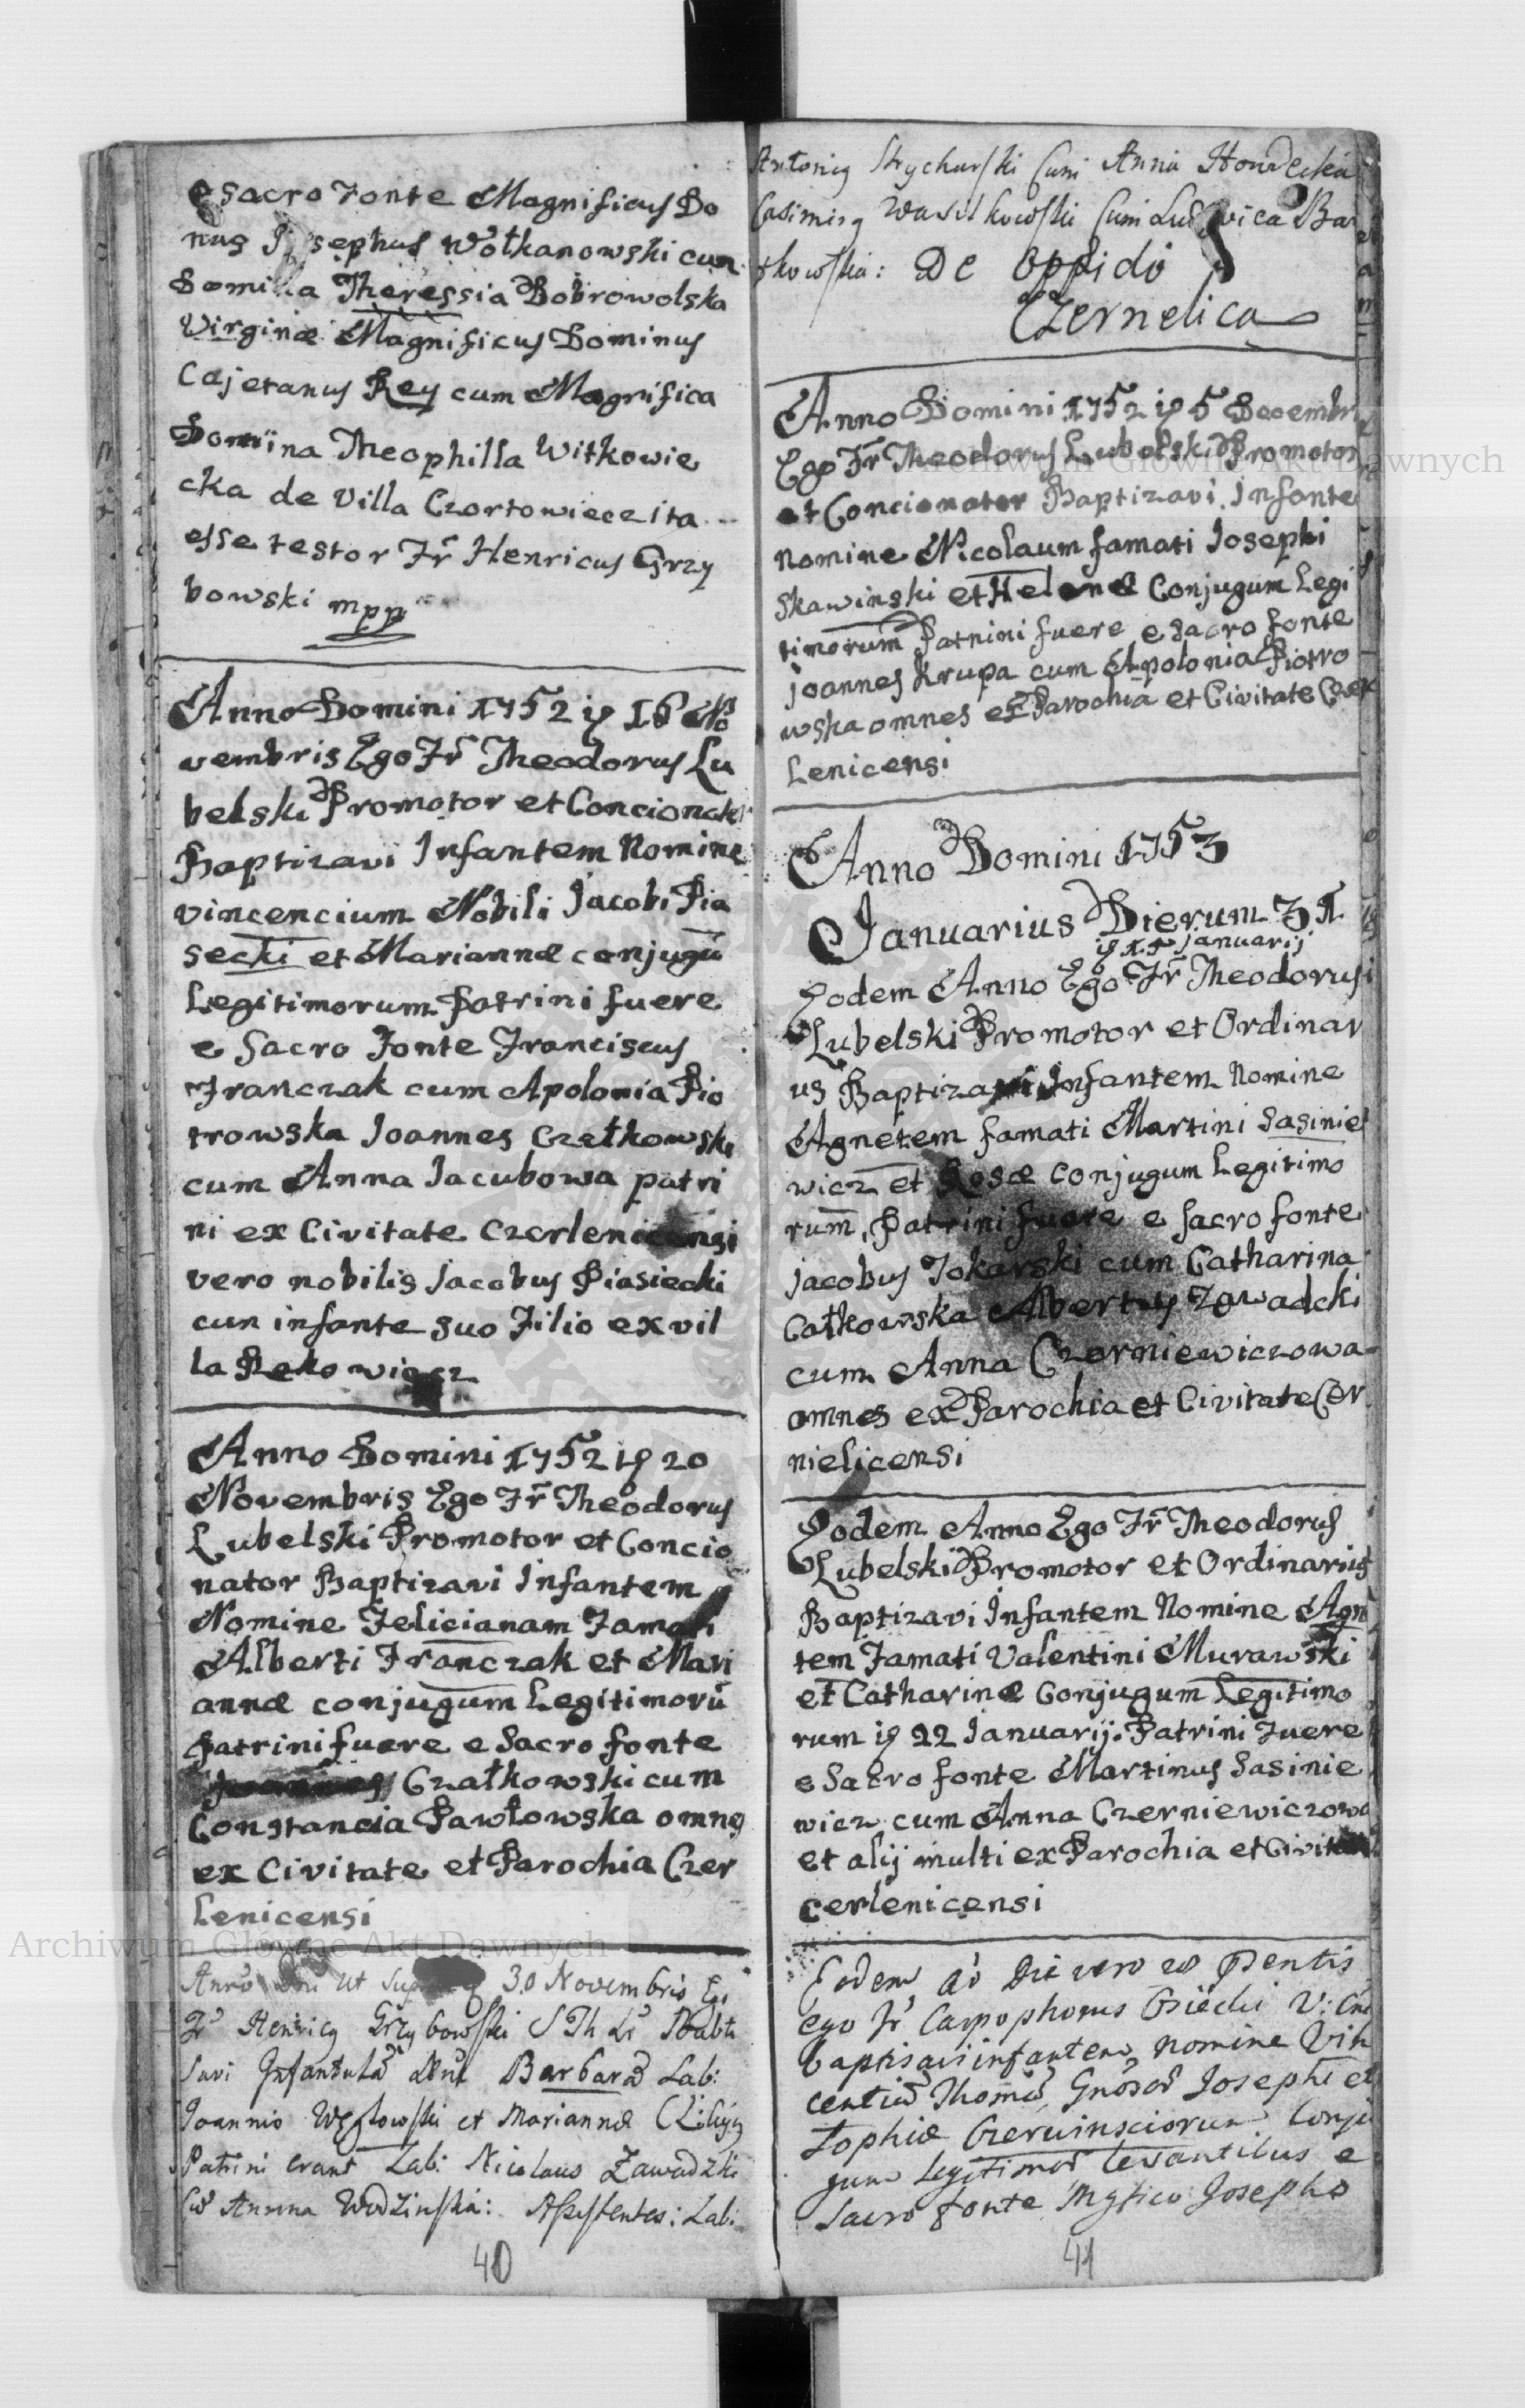 e sacro Fonte Magnificus Do
nus Josephus Wołkanowski cum
Domilla Theressia Bobrowolska
Virginæ Magnificus Dominus
Cajetanus Rey cum Magnifica
Domina Theophilla Witkowie
cka de Villa Czortowiecz ita
esse testor Fr Henricus Grzy
bowski mpp
Anno Domini 1752 16 No
vembris Ego Fr Theodorus Lu
belski Promotor et Concionator
Baptizavi Infantem Nomine
vincencium Nobili Jacobi Pia
secki et Mariannæ conjugū
Legitimorum Patrini fuere
e Sacro Fonte Franciscus
Franczak cum Apolonia Pio
trowska Joannes Czałkowski
cum Anna Jacubowa patri
ni ex Civitate Czerlenicensi
vero nobilis Jacobus Piasiecki
cun infante suo Filio ex vil
la Rakowiecz
Anno Domini 1752 20
Novembris Ego Fr Theodorus
Lubelski Promotor et Concio
nator Baptizavi Infantem
Nomine Felicianam Famati
Alberti Franczak et Mari
annæ conjugum Legitimorū
Patrini fuere e Sacro fonte
Joannes Czałkowski cum
Constancia Pawłowska omnes
ex Civitate et Parochia Czer
Lenicensi
Anno Dni ut Supra 30 Novembris Ego
Fr Henricus Grzybowski S Th Lr Babti
savi Infantulā Barbarā Lab:
Joannis Węglowski et Mariannæ
Patrini erant Lab: Nicolaus Zawadzki
Cū Annna Wodzinska: Assistentes: Lab:
40
Antonius Strycharski Cum Anna
Casimirus Wasilkowski Cum Ludovica Bar
tkowska: De Oppido
Czernelica
Anno Domini 1752 5 Decembr
Ego Fr Theodorus Lubelski Promotor
et Concionator Baptizavi Infante
nomine Nicolaum famati Josephi
Skawinski et Helenæ Conjugum Legi
timorum Patrini fuere e sacro fonte
Joannes Krupa cum Apolonia Piotro
wska omnes ex Parochia et Civitate Czer
Lenicensi
Anno Domini 1753
Januarius Dierum 31
Januarij
Eodem Anno Ego Fr Theodorus
Lubelski Promotor et Ordinari
us Baptizavi Infantem Nomine
Agnetem famati Martini Sasinie
wicz et Rosæ Conjugum Legitimo
rum, Patrini fuere e sacro fonte
Jacobus Tokarski cum Catharina
Całkowska Albertus Zawadcki
cum Anna Czerniewiczowa
omnes ex Parochia et Civitate Cer
nielicensi
Eodem Anno Ego Fr Theodorus
Lubelski Promotor et Ordinarius
Baptizavi Infantem Nomine Agn
tem Famati Valentini Murawski
et Catharinæ Conjugum Legitimo
rum 22 Januarij. Patrini Fuere
e Sacro fonte Martinus Sasinie
wicz cum Anna Czerniewiczowa
et alij multi ex Parochia et Civitate
cerlenicensi
Eodem Ao Die vero 28 Pentis
ego Fr Carpophorus Osiecki
baptisavi infantem nomine Vin
centiū Thomā Gnosor Josephi et
Sophiæ Czerwinsciorum Conju
gum legitimor levantibus e
Sacro fonte Mgfico Josepho
41
Archiwum Główne Akt Dawnych
Archiwum Główne Akt Dawnych